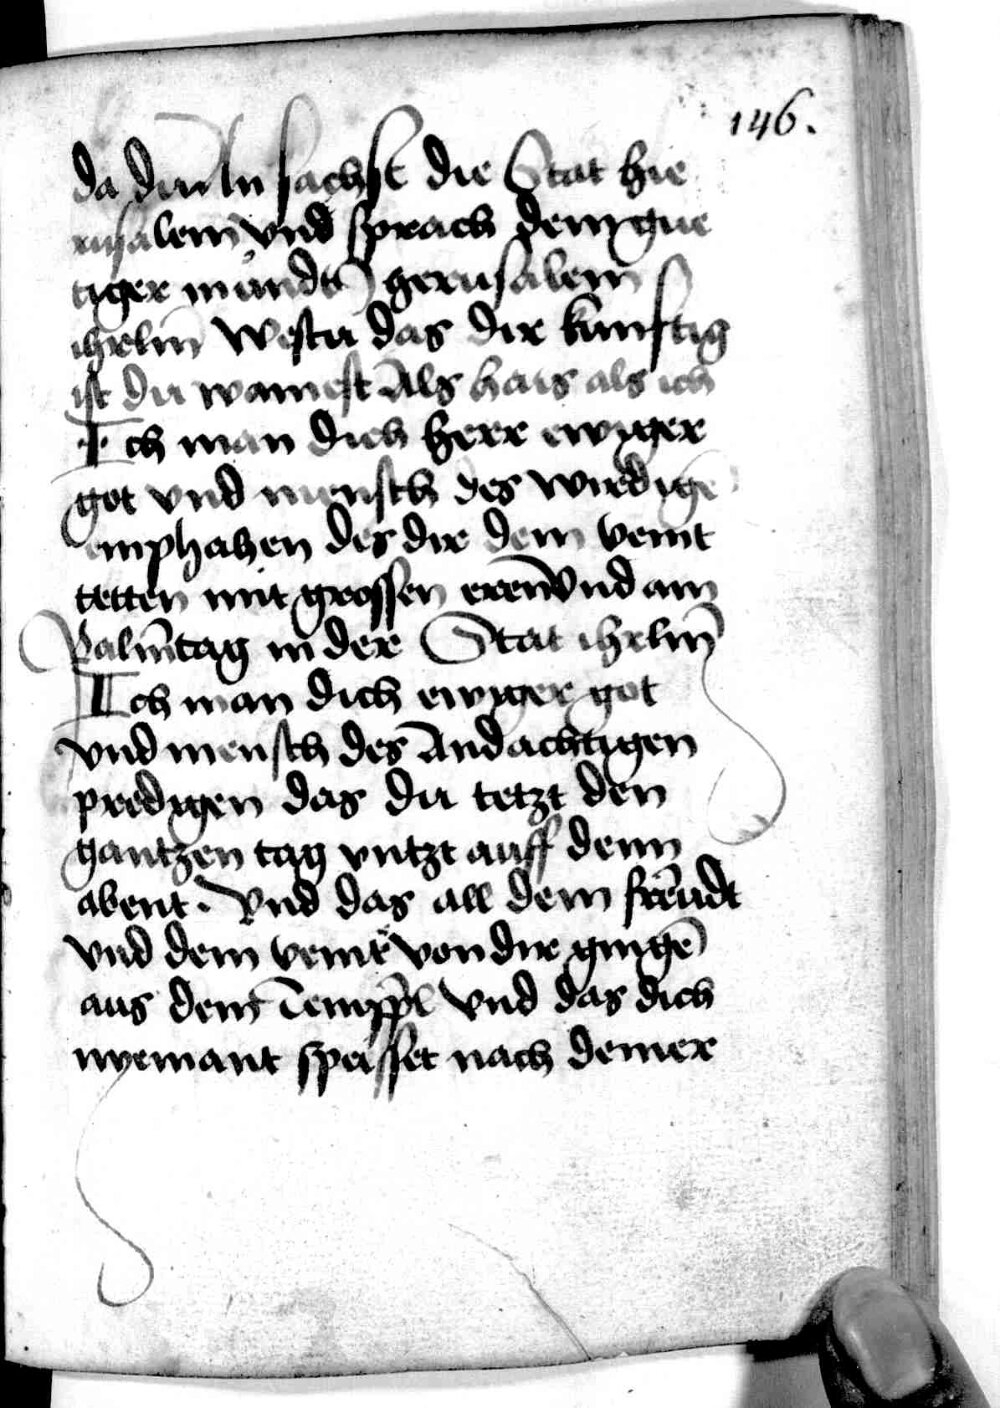 146.
da du an sachst die Stat hie
rusalem vnd sprach dein gue
tiger mundt Jherusalem
ihrlm westu das dir kunftig
ist du wainest Als hais als ich
Ich man dich herr ewiger
got vnd mensch des wirdigē
emphahen des dir dein veint
tetten mit grossen eren vnd am
Palmtag in der Stat ihrlm
Ich man dich ewiger got
vnd mensch des Andachtigen
predigen das du tetzt den
gantzen tag vntzt auff denn
abent. Vnd das all dein freundt
vnd dein veint von dir gingē
aus dem Tempel Vnd das dich
nyemant speisset nach deiner